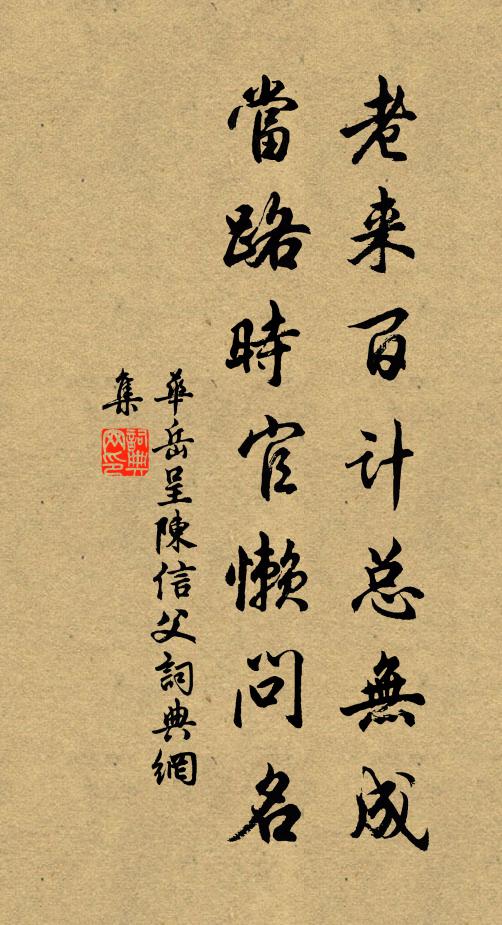 老来百计总無成
當路時官懶問名
華岳呈陳信父詞典網
集
詞典
网印